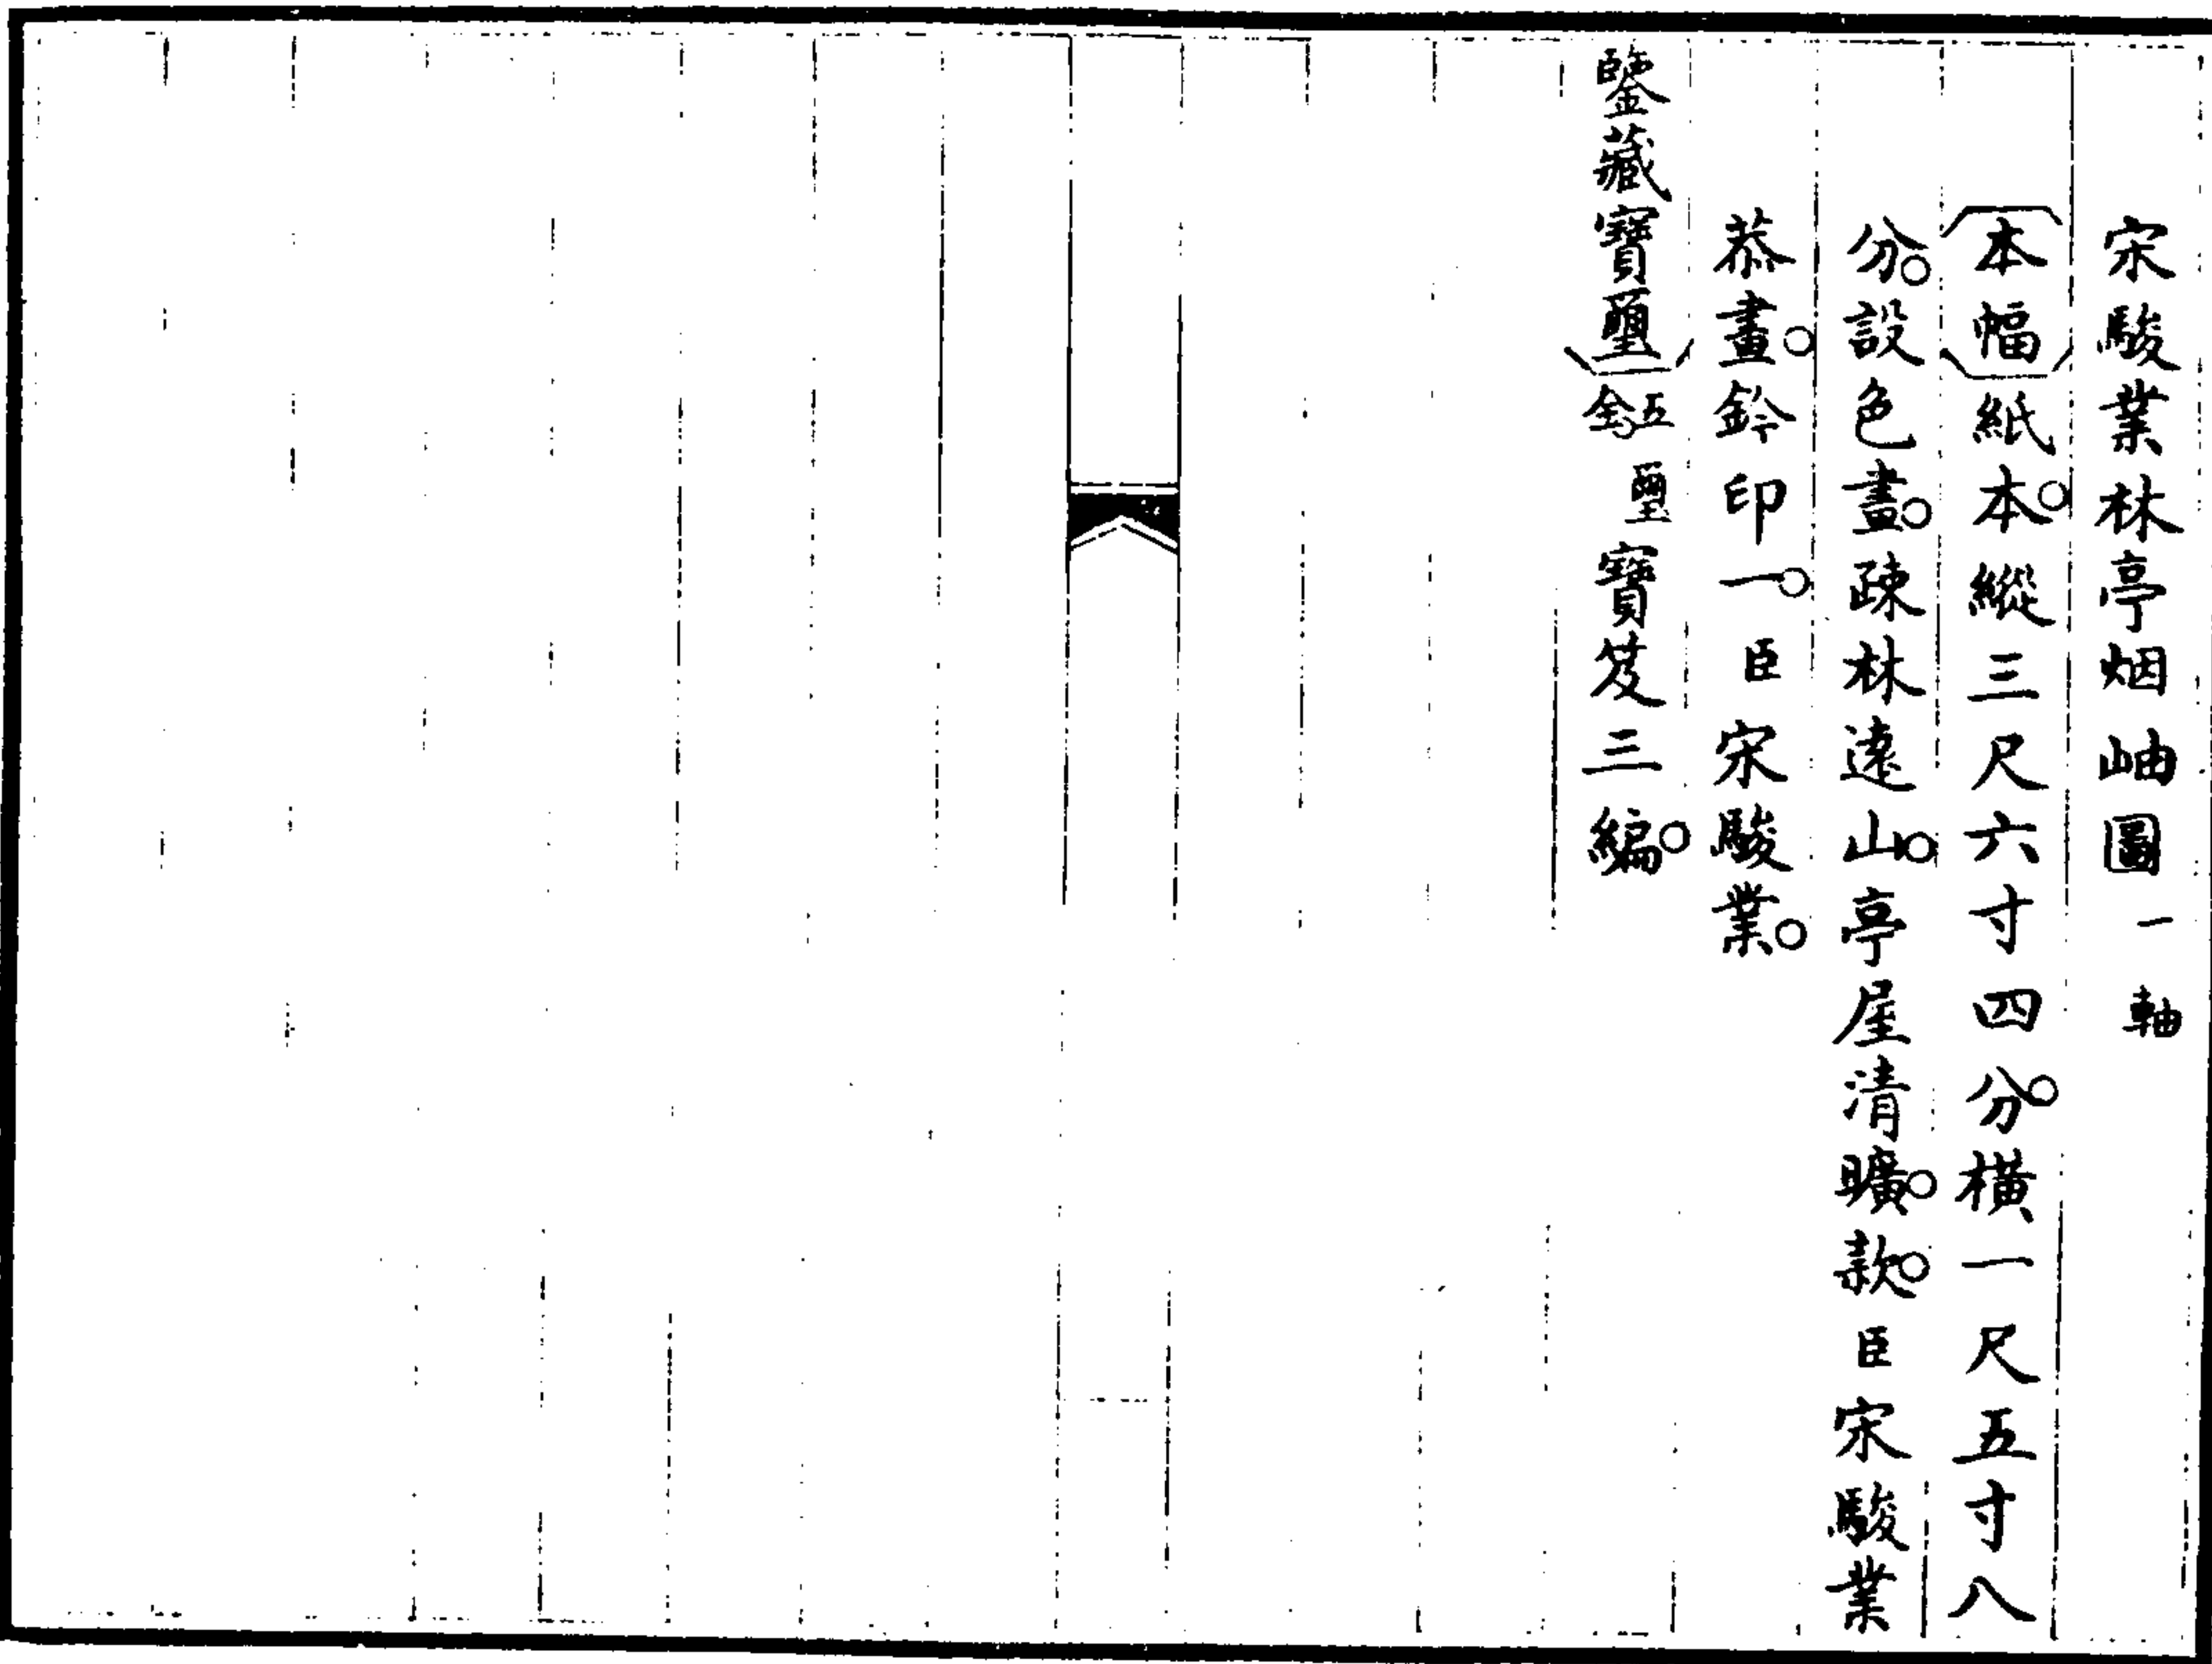 宋駿業林亭烟岫圖一軸
〔本幅〕紙本。縱三尺六寸四分。橫一尺五寸八
分。設色畫。疎林遠山。亭屋清曠。款。臣宋駿業
恭畫。鈐印一。臣宋駿業。
鑒藏寶璽〕五璽全寶笈三編。